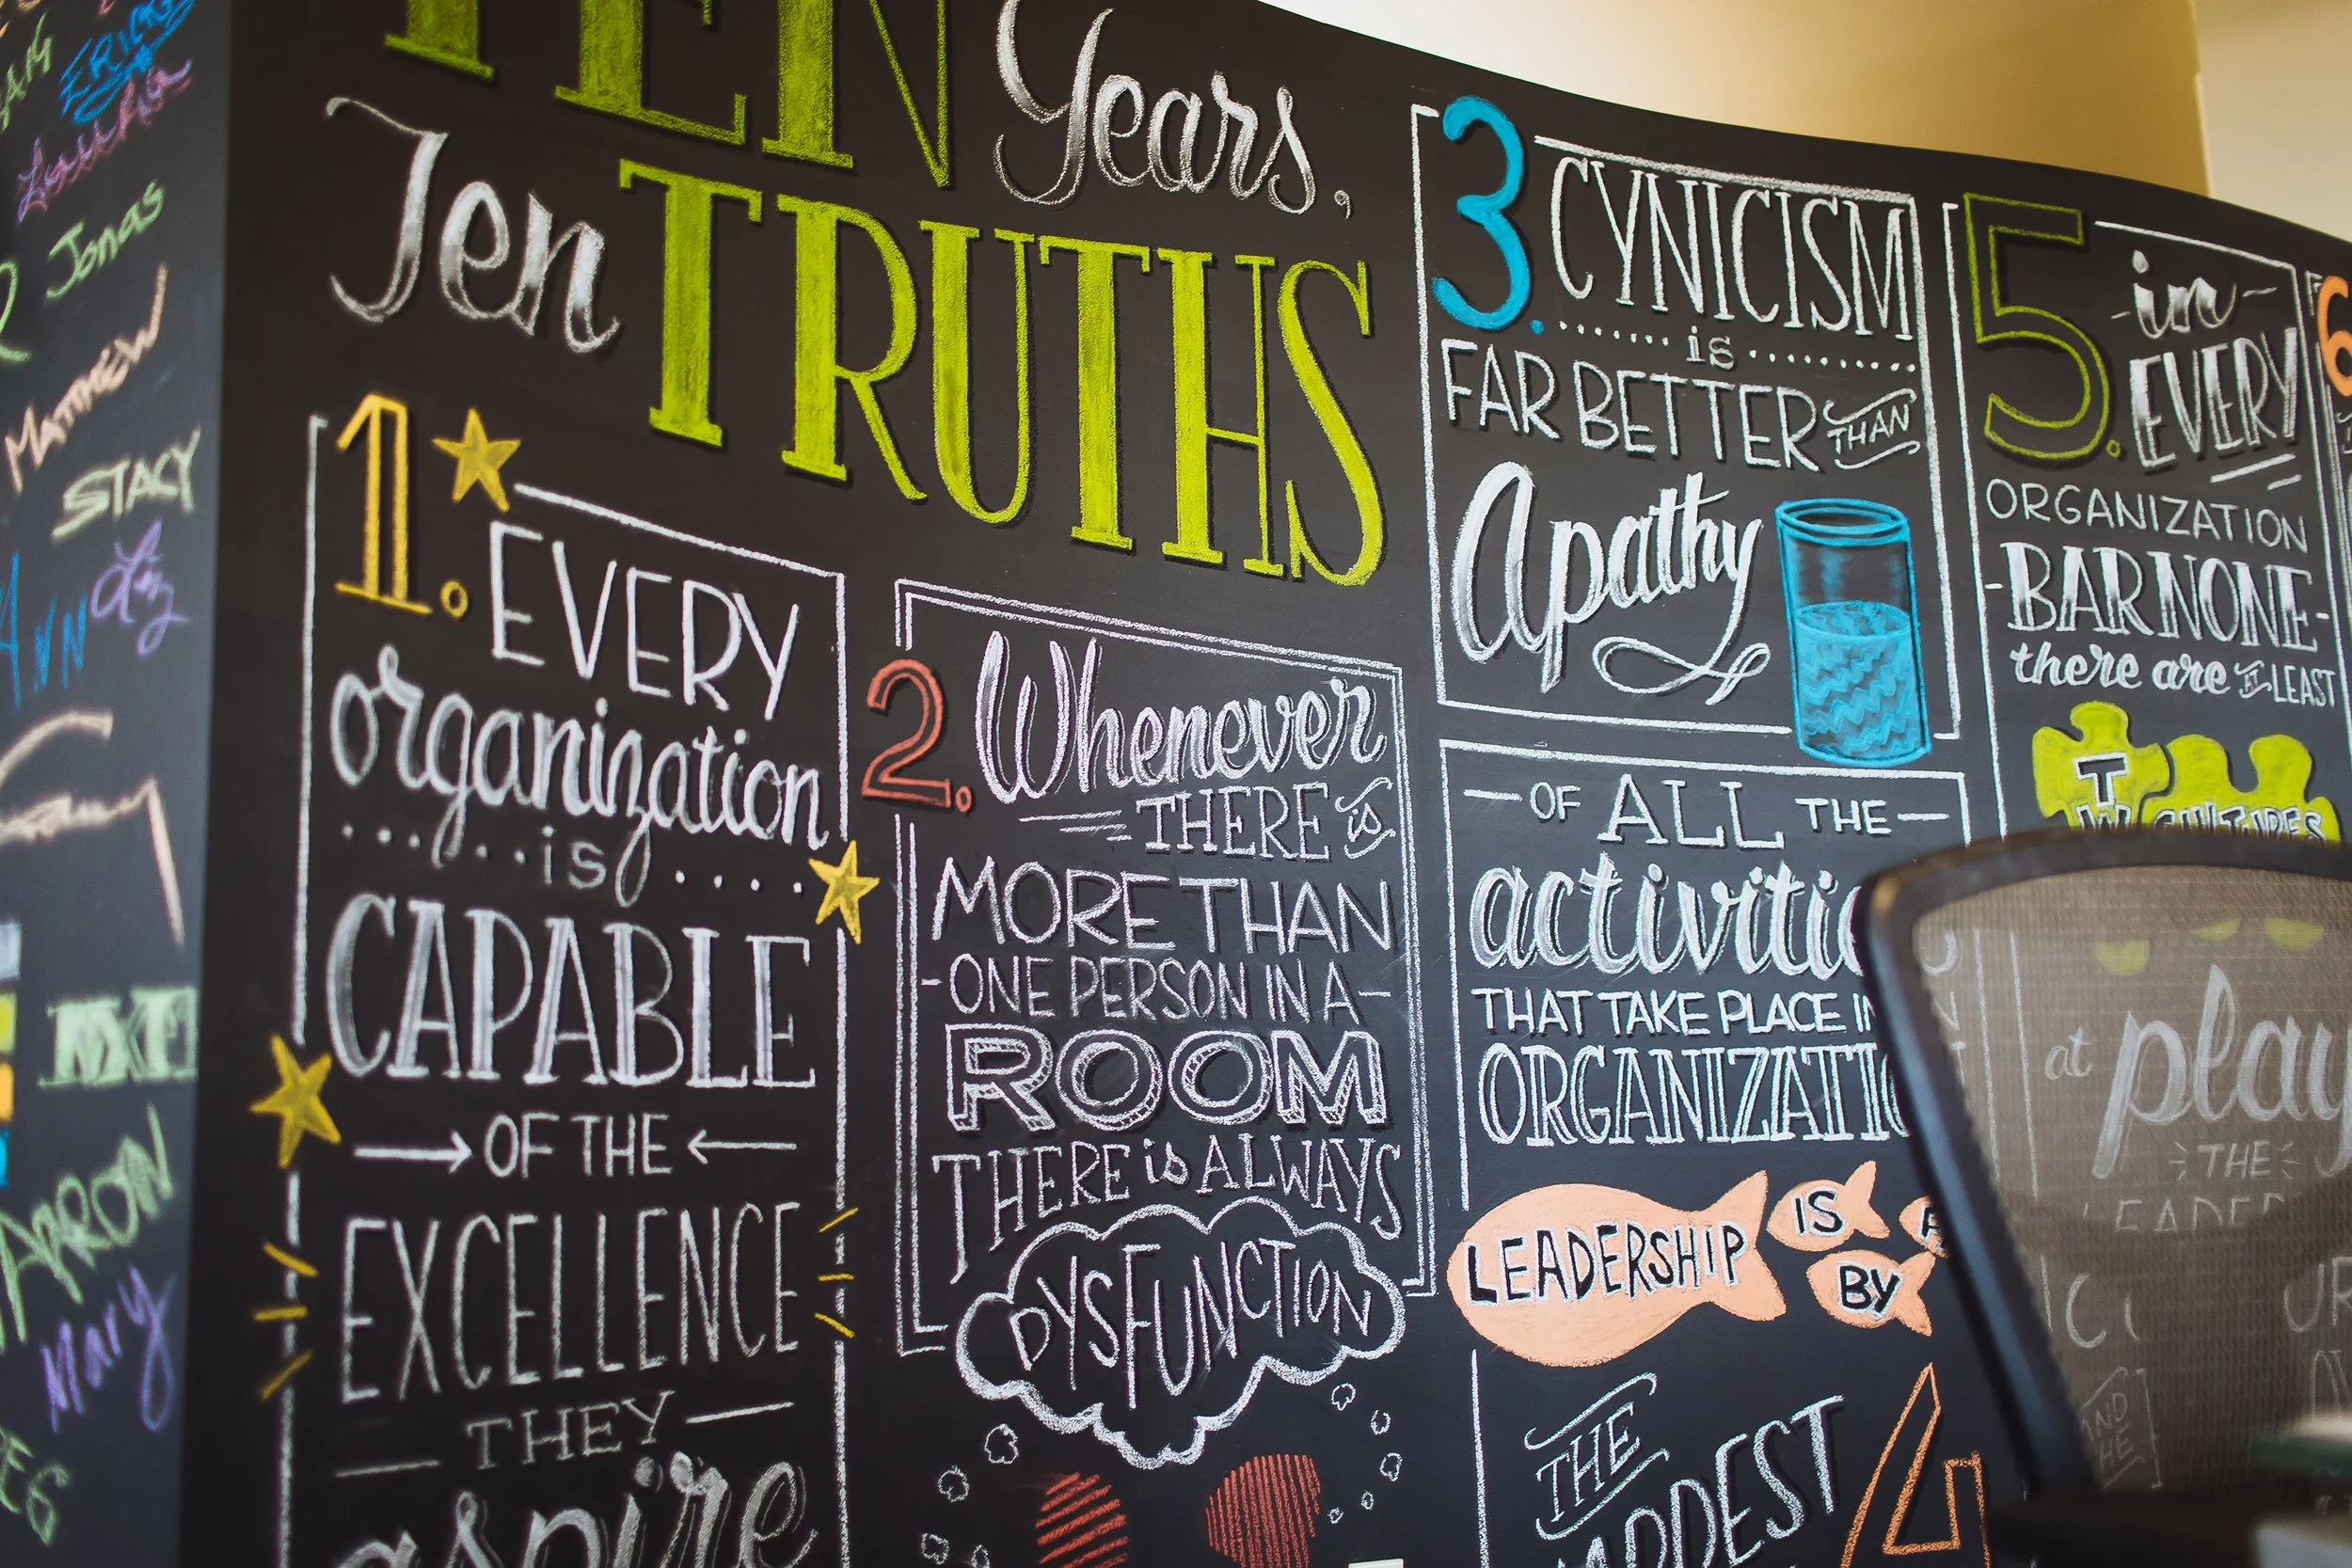 ERIC
Jonas
MATTHEW
STACY
Liz
AARON
Mary
TEN Years,
Ten TRUTHS
1. EVERY
organization
is
CAPABLE
OF THE
EXCELLENCE
THEY
aspire
2. Whenever
THERE is
MORE THAN
ONE PERSON IN A
ROOM
THERE is ALWAYS
DYSFUNCTION
3. CYNICISM
is
FAR BETTER THAN
Apathy
OF ALL THE
activitie
THAT TAKE PLACE IN
ORGANIZATIO
LEADERSHIP IS
BY
THE
4
5. in
EVERY
ORGANIZATION
BAR NONE
there are AT LEAST
TW CULTURES
at play
THE
LEADER
AND
HE
6